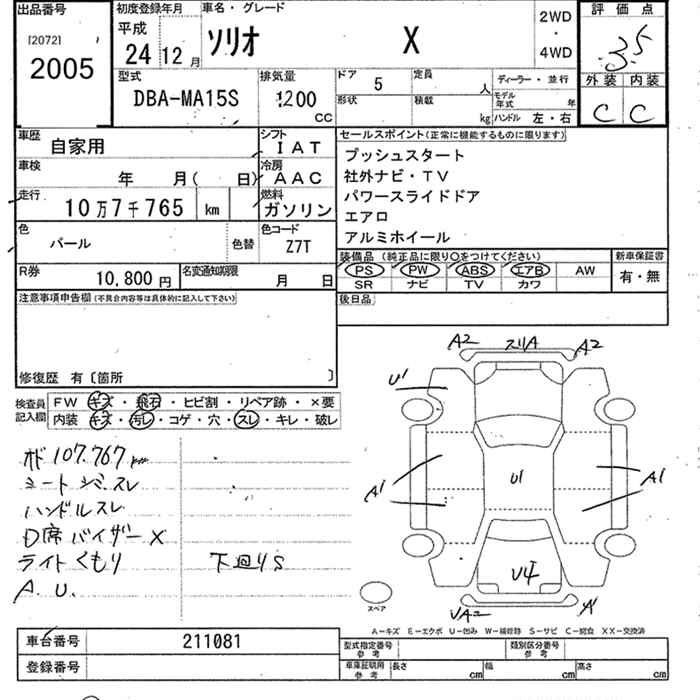 出品番号 初度登録年月 車名・グレード 2WD ・ 4WD 評価点
[2072] 2005 平成 24 12月 ソリオ X 3.5
型式 DBA-MA15S 排気量 1200 CC ドア 5 定員 人 ディーラー・並行 外装 内装
形状 積載 kg モデル年式 年 ハンドル 左・右 C C
車歴 自家用 シフト IAT セールスポイント(正常に機能するものに限ります)
車検 年 月( 日) 冷房 AAC プッシュスタート
社外ナビ・TV
走行 10万7千765 km 燃料 ガソリン パワースライドドア
エアロ
色 パール 色替 色コード Z7T アルミホイール
装備品 (純正品に限り○をつけてください) 新車保証書
R券 10,800円 名変通知期限 月 日 PS PW ABS エアB AW 有・無
SR ナビ TV カワ
注意事項申告欄(不具合内容等は具体的に記入して下さい) 後日品
修復歴 有〔箇所 〕
検査員記入欄 FW キズ・飛石・ヒビ割・リペア跡・×要
内装 キズ・汚レ・コゲ・穴・スレ・キレ・破レ
オド 107.767km
シートシミ.スレ
ハンドルスレ
D席 バイザー X
ライトくもり 下回りS
A.U.
A2 スリA A2
U1
A1 U1 A1
U4
UA2 A1
スペア
A-キズ E-エクボ U-凹み W-補修跡 S-サビ C-腐食 XX-交換済
車台番号 211081 型式指定番号 参考 類別区分番号 参考
登録番号 車庫証明用 参考 長さ cm 幅 cm 高さ cm